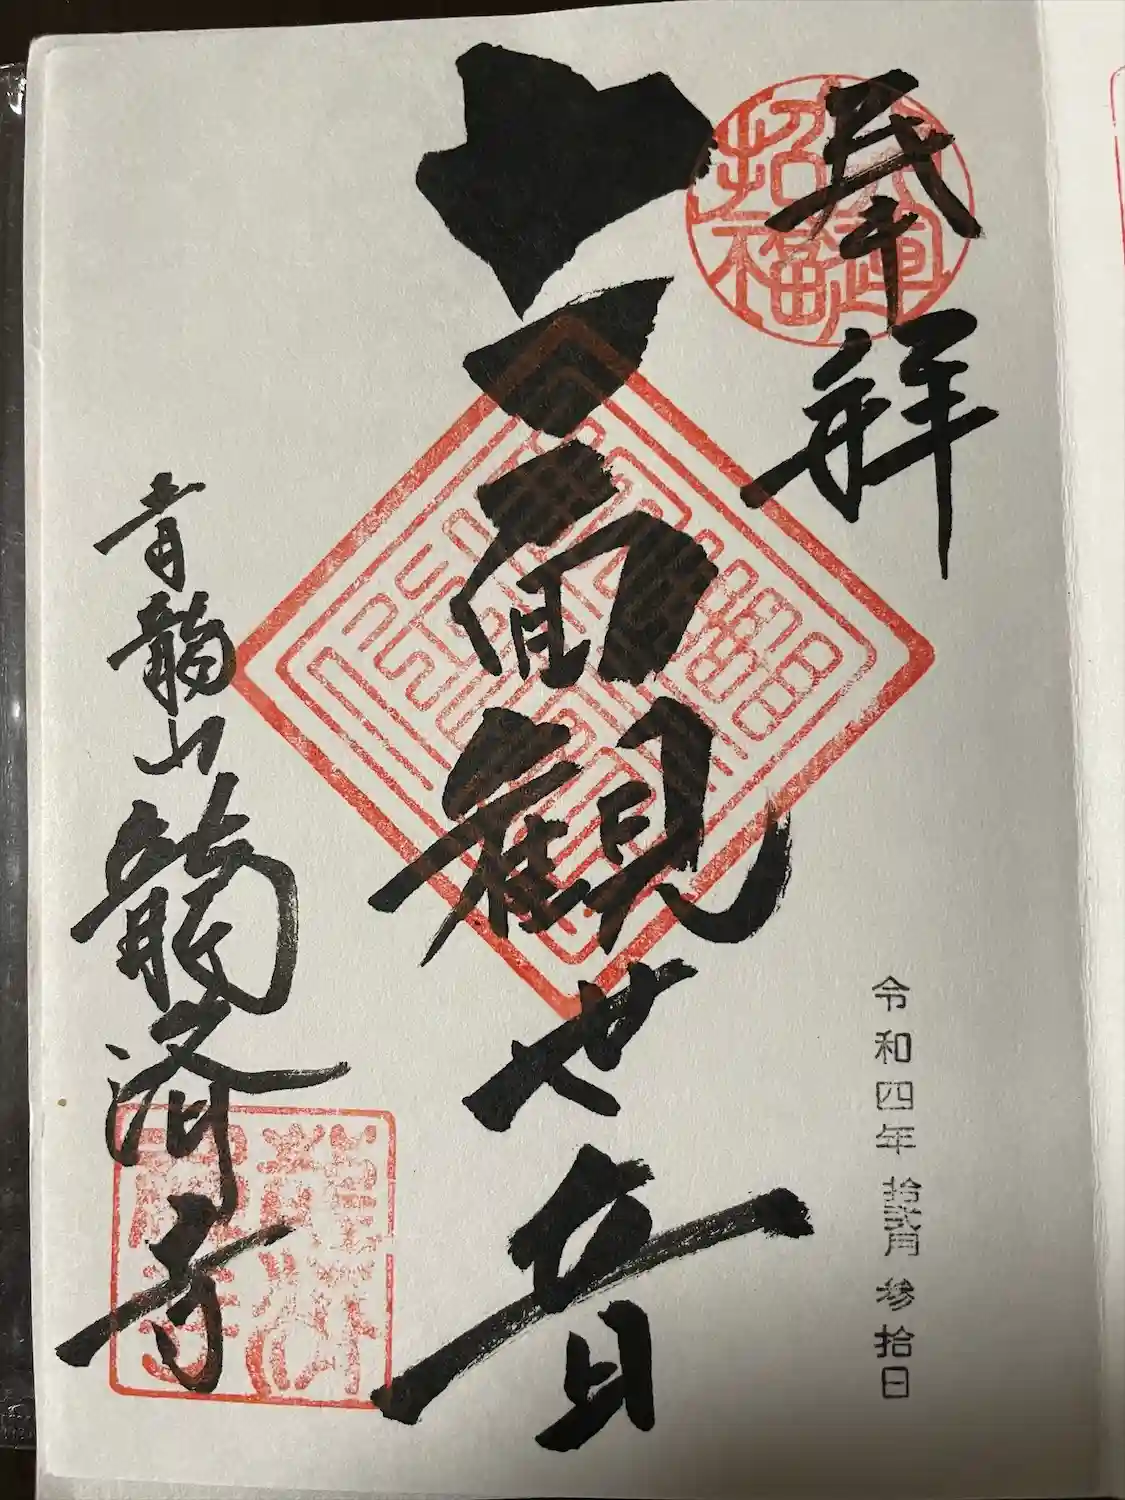 奉拝
開運
招福
令和四年拾弐月参拾日
十一面観世音
青龍山龍済寺